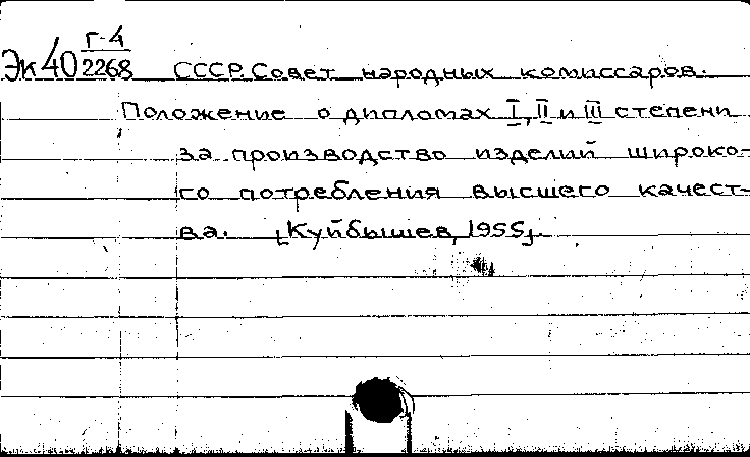 Г-4
Эк40 2268 СССР. Совет народных комиссаров.
Положение о дипломах I, II и III степени
за производство изделий широко-
го потребления высшего качест-
ва. [Куйбышев, 1955].